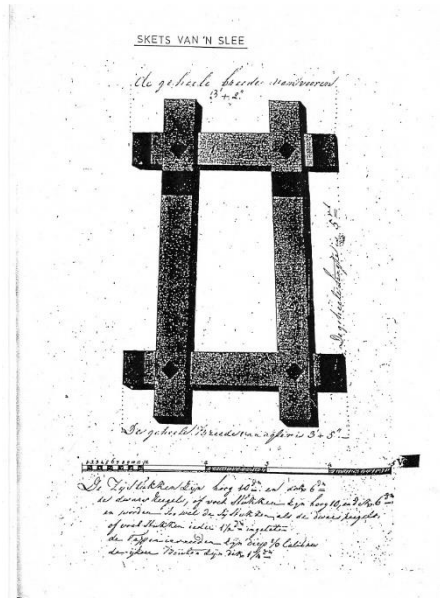 SKETS VAN 'N SLEE
de geheele breede van vooren
3' + 2"
De geheele lengte is 5
De geheele Breede van agter is 3' + 5"
De Zijstukken zijn hoog 10 en dik 6
de dwars Regels, of voet Stukken zijn hoog 10, en dik 6
en worden zoo wel de Zystukken, als de dwars regels
of voet Stukken ieder 1½ ingelaten
de Tappen zijn diep
Bouten zijn dik 1½